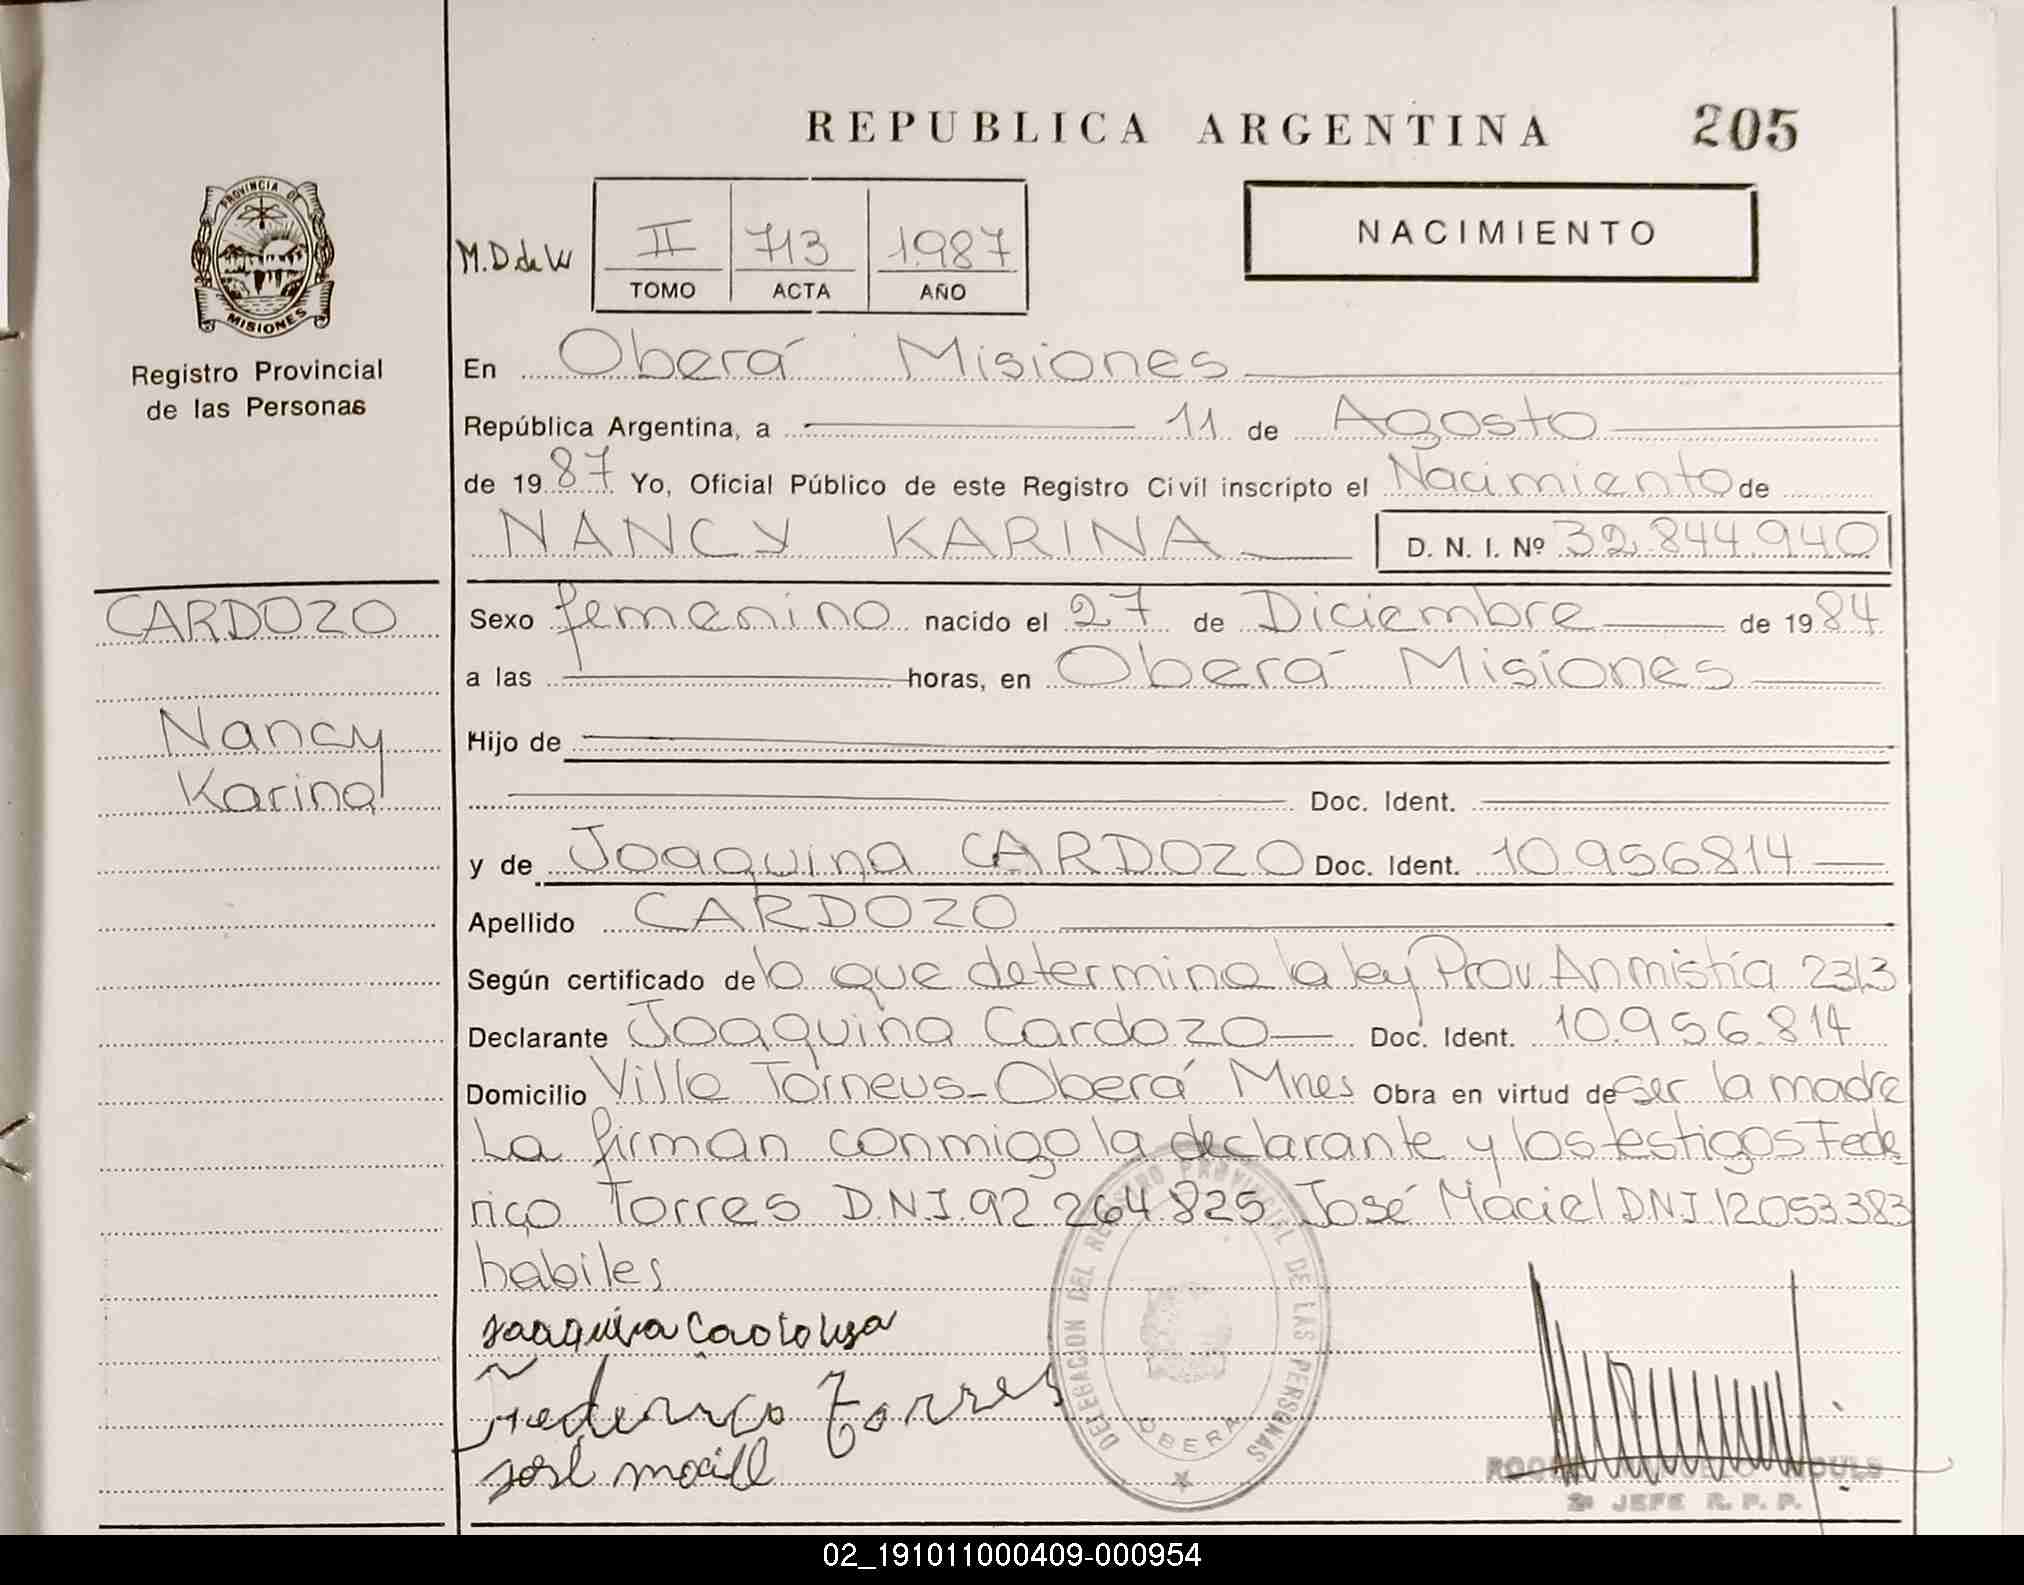 REPUBLICA ARGENTINA 205
PROVINCIA DE
MISIONES
Registro Provincial
de las Personas
NACIMIENTO
M.D de W
II 713 1987
TOMO ACTA AÑO
En Oberá Misiones
República Argentina, a 11 de Agosto
de 1987 Yo, Oficial Público de este Registro Civil inscripto el Nacimiento de
NANCY KARINA D. N. I. Nº 32.844.940
CARDOZO
Nancy
Karina
Sexo femenino nacido el 27 de Diciembre de 1984
a las horas, en Oberá Misiones
Hijo de
Doc. Ident.
y de Joaquina CARDOZO Doc. Ident. 10.956814
Apellido CARDOZO
Según certificado de lo que determina la ley Prov Anmistía 2313
Declarante Joaquina Cardozo Doc. Ident. 10.956.814
Domicilio Ville Torneus-Oberá Mnes Obra en virtud de ser la madre
La firman conmigo la declarante y los testigos Fede
rico Torres D.N.I. 92 264 825 José Maciel DNI 12053383
habiles
DELEGACION DEL REGISTRO PROVINCIAL DE LAS PERSONAS
OBERA
Joaquina
Federico Torres
José
2º JEFE R. P. P.
02_191011000409-000954